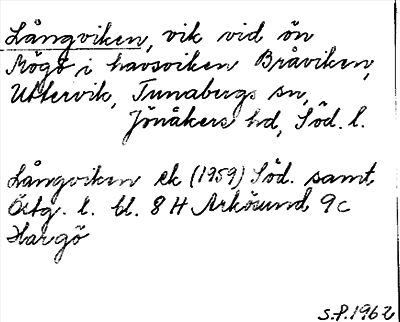 Långviken, vik vid ön
Mögö i havsviken Bråviken,
Uttervik, Tunabergs sn,
Jönåkers hd, Söd. l.
Långviken ek (1959) Söd. samt
Östg. l. bl. 8 H Arkösund 9c
Hargö
S.P. 1962